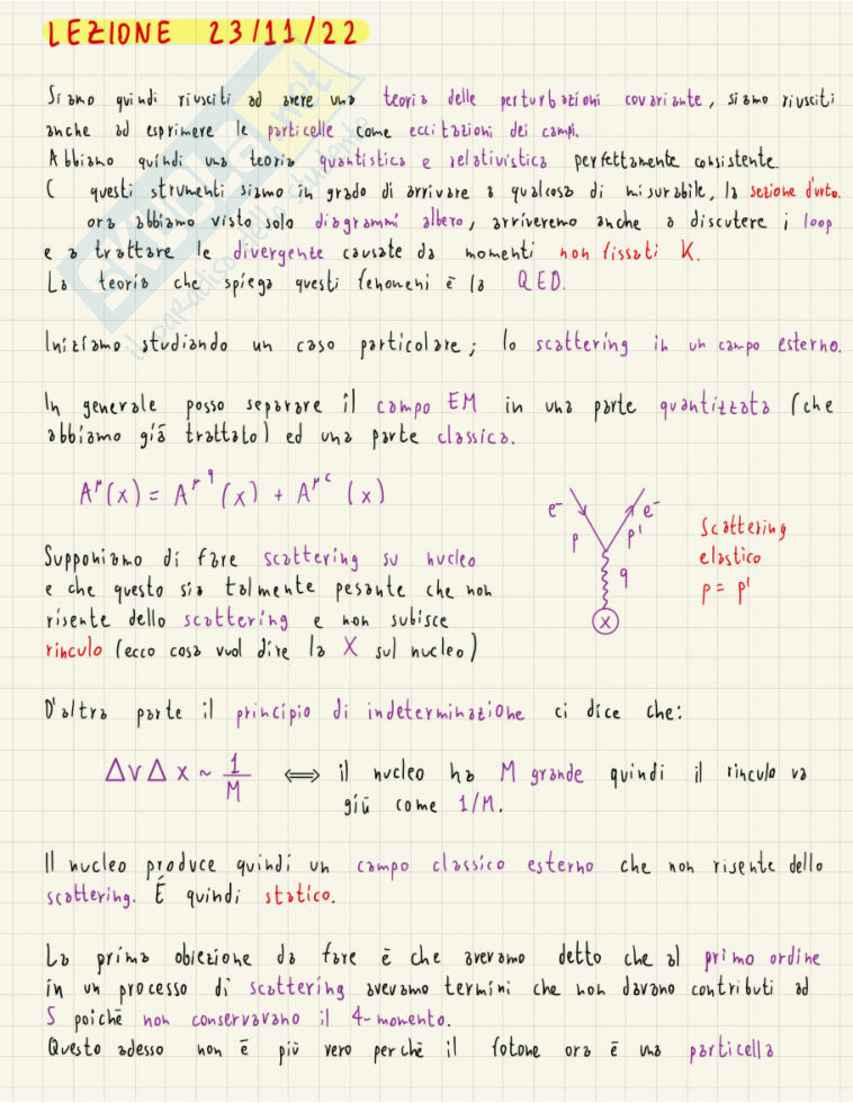 LEZIONE 23/11/22
Siamo quindi riusciti ad avere una teoria delle perturbazioni covariante, siamo riusciti
anche ad esprimere le particelle come eccitazioni dei campi.
Abbiamo quindi una teoria quantistica e relativistica perfettamente consistente.
C questi strumenti siamo in grado di arrivare a qualcosa di misurabile, la sezione d'urto.
ora abbiamo visto solo diagrammi albero, arriveremo anche a discutere i loop
e a trattare le divergente causate da momenti non fissati K.
La teoria che spiega questi fenomeni è la QED.
Iniziamo studiando un caso particolare; lo scattering in un campo esterno.
In generale posso separare il campo EM in una parte quantizzata (che
abbiamo già trattato) ed una parte classica.
A^μ(x) = A^{μ q}(x) + A^{μ c}(x)
e⁻ e⁻
p p'
q
X
Scattering
elastico
p = p'
Supponiamo di fare scattering su nucleo
e che questo sia talmente pesante che non
risente dello scattering e non subisce
rinculo (ecco cosa vuol dire la X sul nucleo)
D'altra parte il principio di indeterminazione ci dice che:
Δv Δx ~ 1/M ⟺ il nucleo ha M grande quindi il rinculo va
giù come 1/M.
Il nucleo produce quindi un campo classico esterno che non risente dello
scattering. È quindi statico.
La prima obiezione da fare è che avevamo detto che al primo ordine
in un processo di scattering avevamo termini che non davano contributi ad
S poiché non conservavano il 4-momento.
Questo adesso non è più vero perché il fotone ora è una particella
skuola.net
il paradiso dello studente